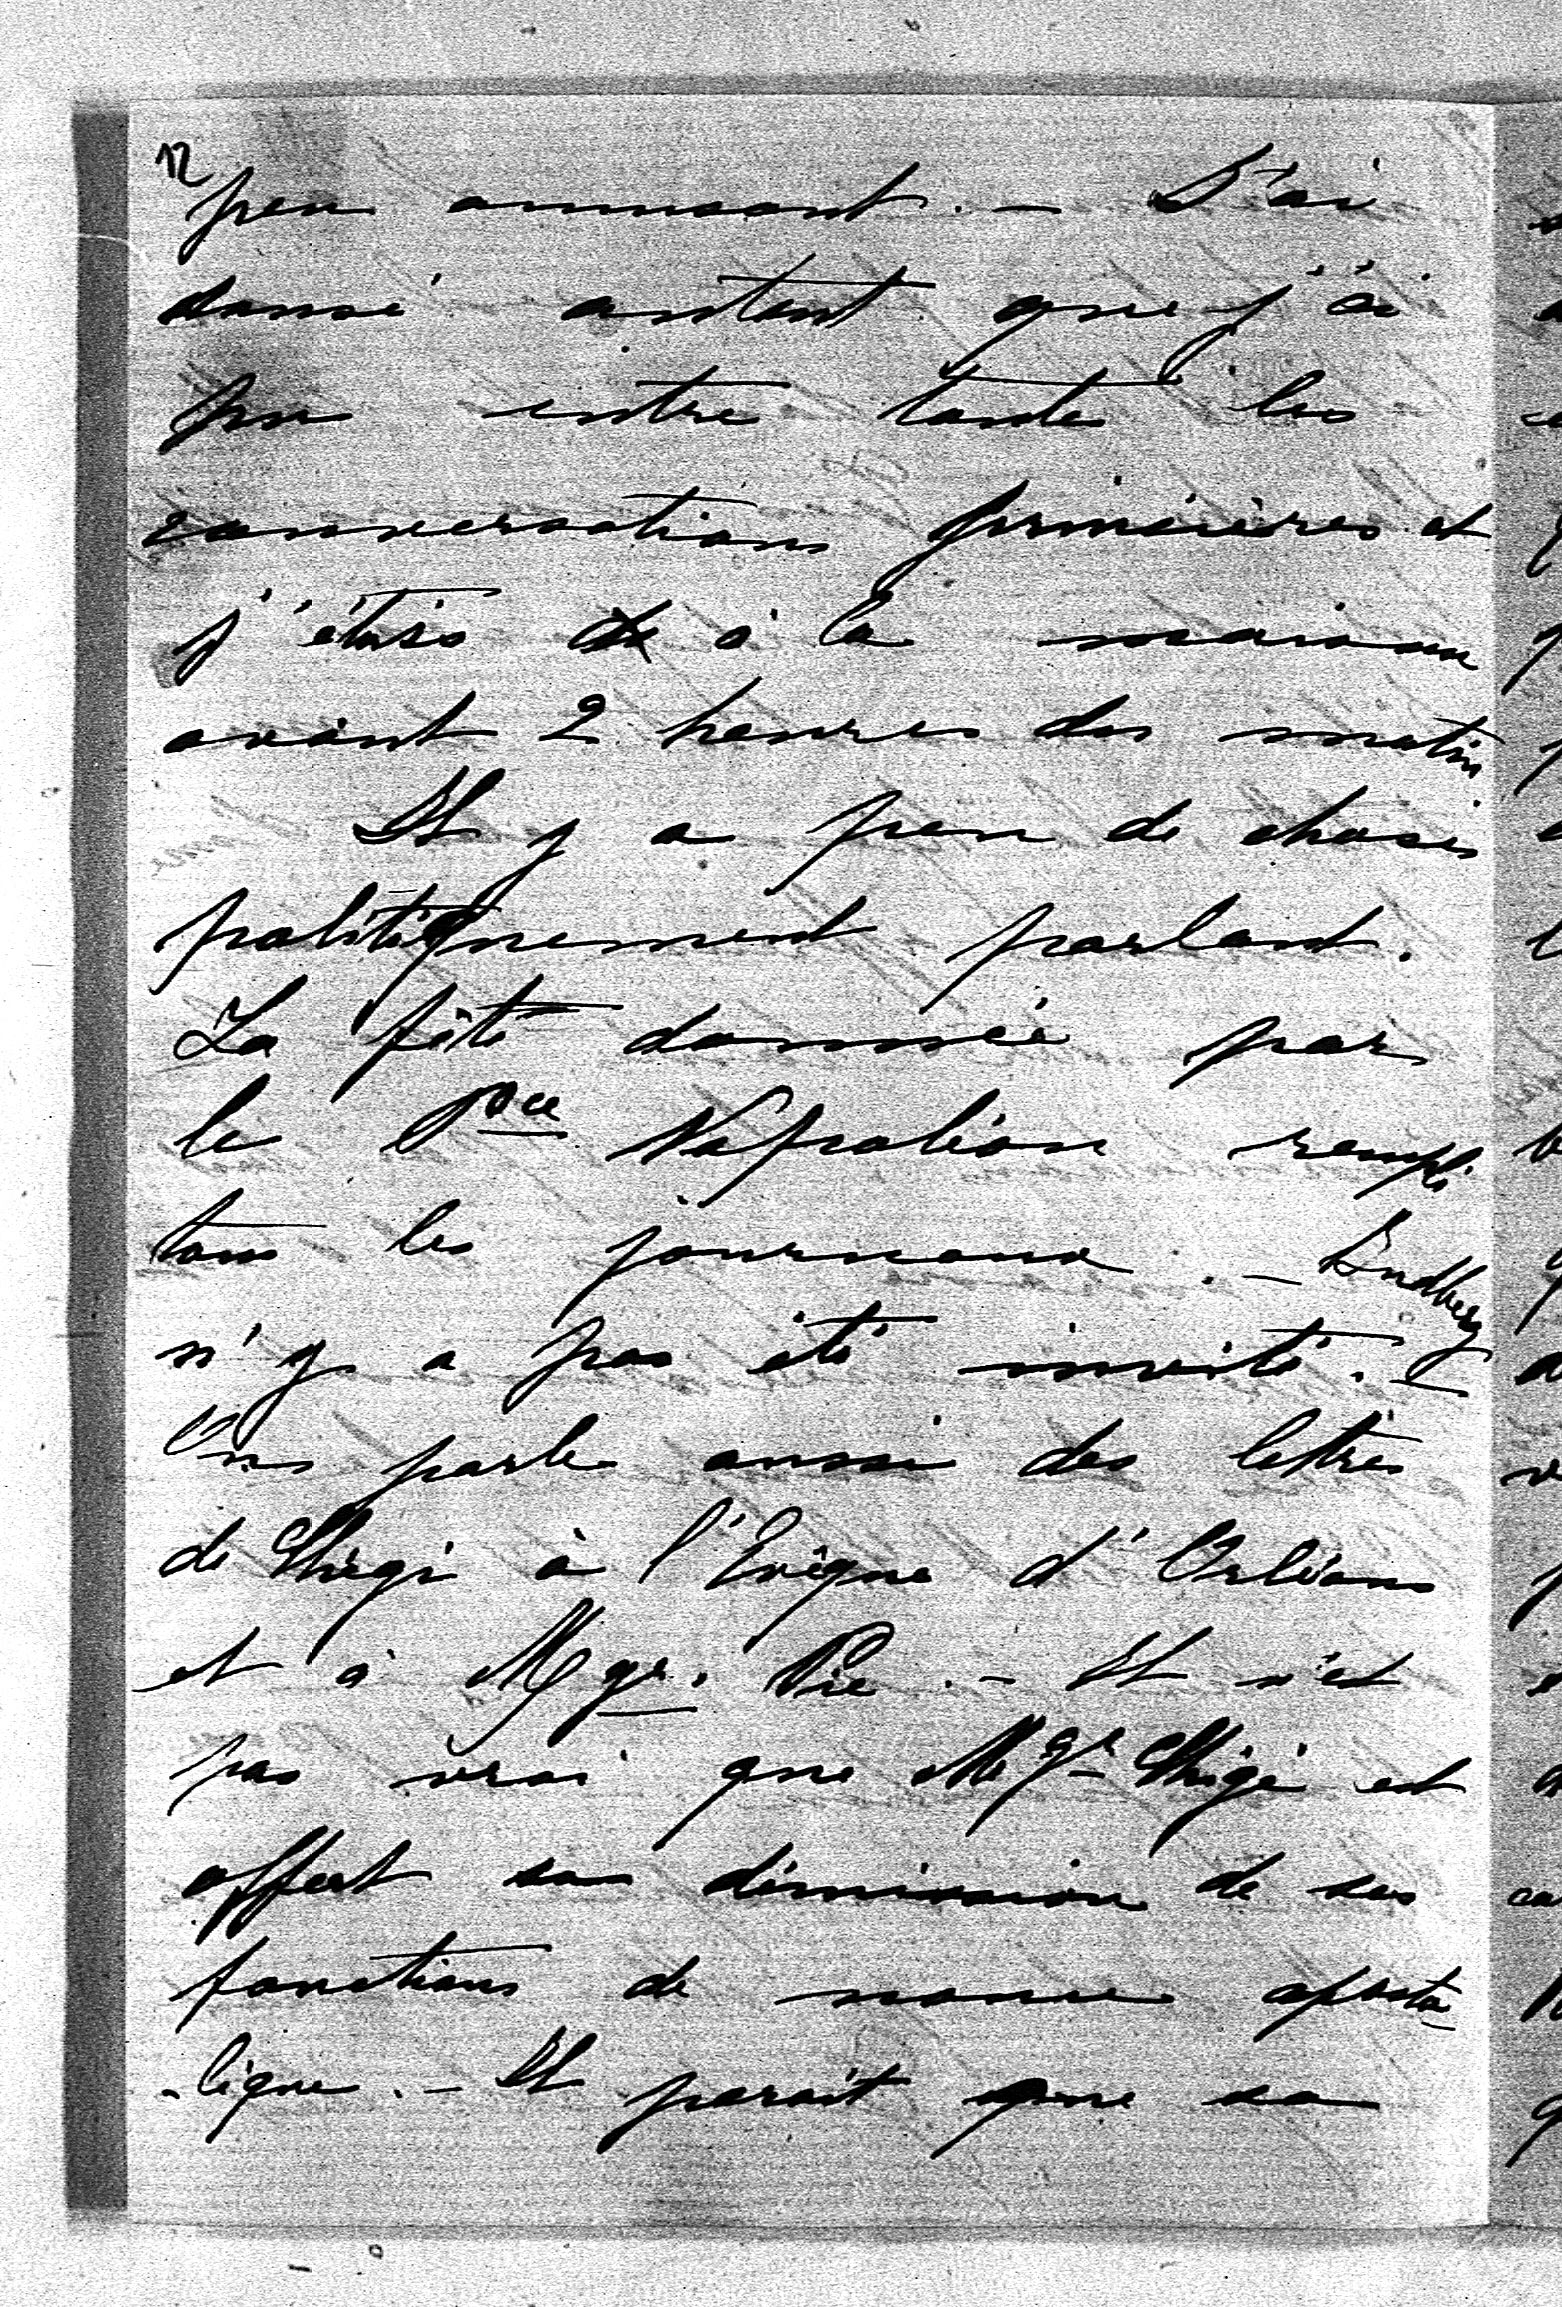 12
peu amusant. – J'ai
dansé autant que j'ai
pu entre toutes les
conversations princières et
j'étais à la maison
avant 2 heures du matin
Il y a peu de choses
politiquement parlant.
La fête donnée par
le Pce Napoléon rempli
tous les journaux. –
n'y a pas été invité. –
On parle aussi des lettres
de Chigi à l'Evêque d'Orléans
et à Mgr. Pie. – Il n'est
pas vrai que Mgr Chigi est
offert sa démission de ses
fonctions de nonce aposto
-lique. – Il parait que sa